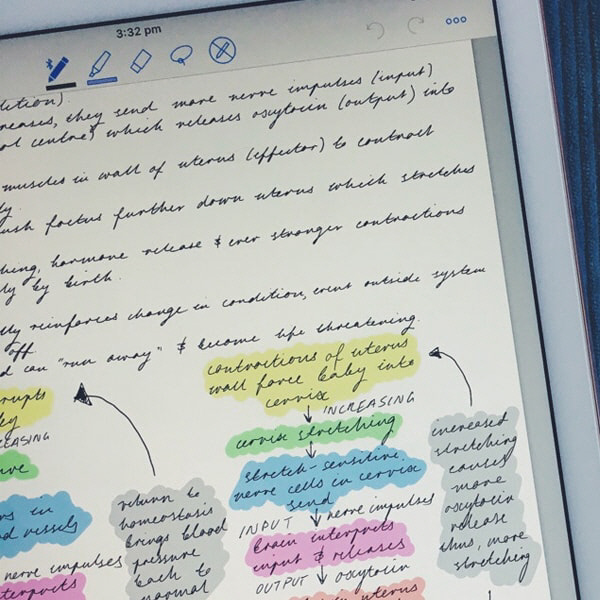 3:32 pm
dition)
reases, they send more nerve impulses (input)
ol centre) which releases oxytocin (output) into
muscles in wall of uterus (effector) to contract
ly.
ush foetus further down uterus which stretches
hing, hormone release & ever stronger contractions
ly by birth.
lly reinforces change in condition, event outside system
off
d can "run away" & become life threatening.
contractions of uterus
wall force baby into
cervix
INCREASING
cervix stretching
stretch-sensitive
nerve cells in cervix
send
INPUT nerve impulses
brain interprets
input & releases
OUTPUT oxytocin
uterus
increased
stretching
causes
more
oxytocin
release
thus, more
stretching
rupts
by
EASING
ve
rs in
d vessels
nerve impulses
terprets
return to
homeostasis
brings blood
pressure
back to
normal